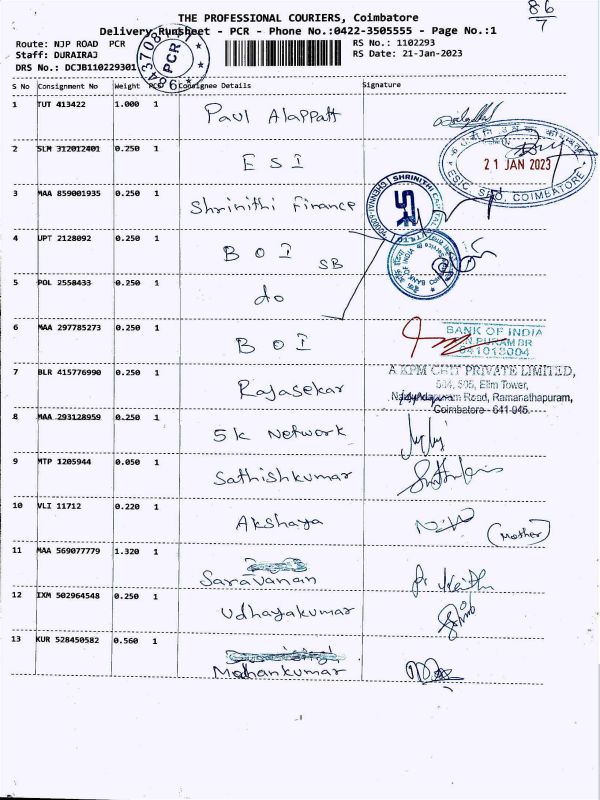 86
7
THE PROFESSIONAL COURIERS, Coimbatore
Delivery Runsheet - PCR - Phone No.:0422-3505555 - Page No.:1
Route: NJP ROAD PCR
RS No.: 1102293
Staff: DURAIRAJ
RS Date: 21-Jan-2023
DRS No.: DCJB110229301
PCR
S No Consignment No Weight PCS Consignee Details Signature
1 TUT 413422 1.000 1 Paul Alappatt
2 SLM 312012401 0.250 1 ESI
21 JAN 2023
ESIC, SRO, COIMBATORE
3 MAA 859001935 0.250 1 Shrinithi Finance
SHRINITHI CAPITAL
4 UPT 2128092 0.250 1 BOI SB
5 POL 2558433 0.250 1 do
6 MAA 297785273 0.250 1 BOI
BANK OF INDIA
641018004
7 BLR 415776990 0.250 1 Rajasekar
PRIVATE LIMITED,
504, 505, Elim Tower,
Road, Ramanathapuram,
Coimbatore - 641 045.
8 MAA 293128959 0.250 1 5k Network
9 MTP 1205944 0.050 1 Sathishkumar
10 VLI 11712 0.220 1 Akshaya
(Mother)
11 MAA 569077779 1.320 1 Saravanan
12 IXM 502964548 0.250 1 Udhayakumar
13 KUR 528450582 0.560 1 Mohankumar